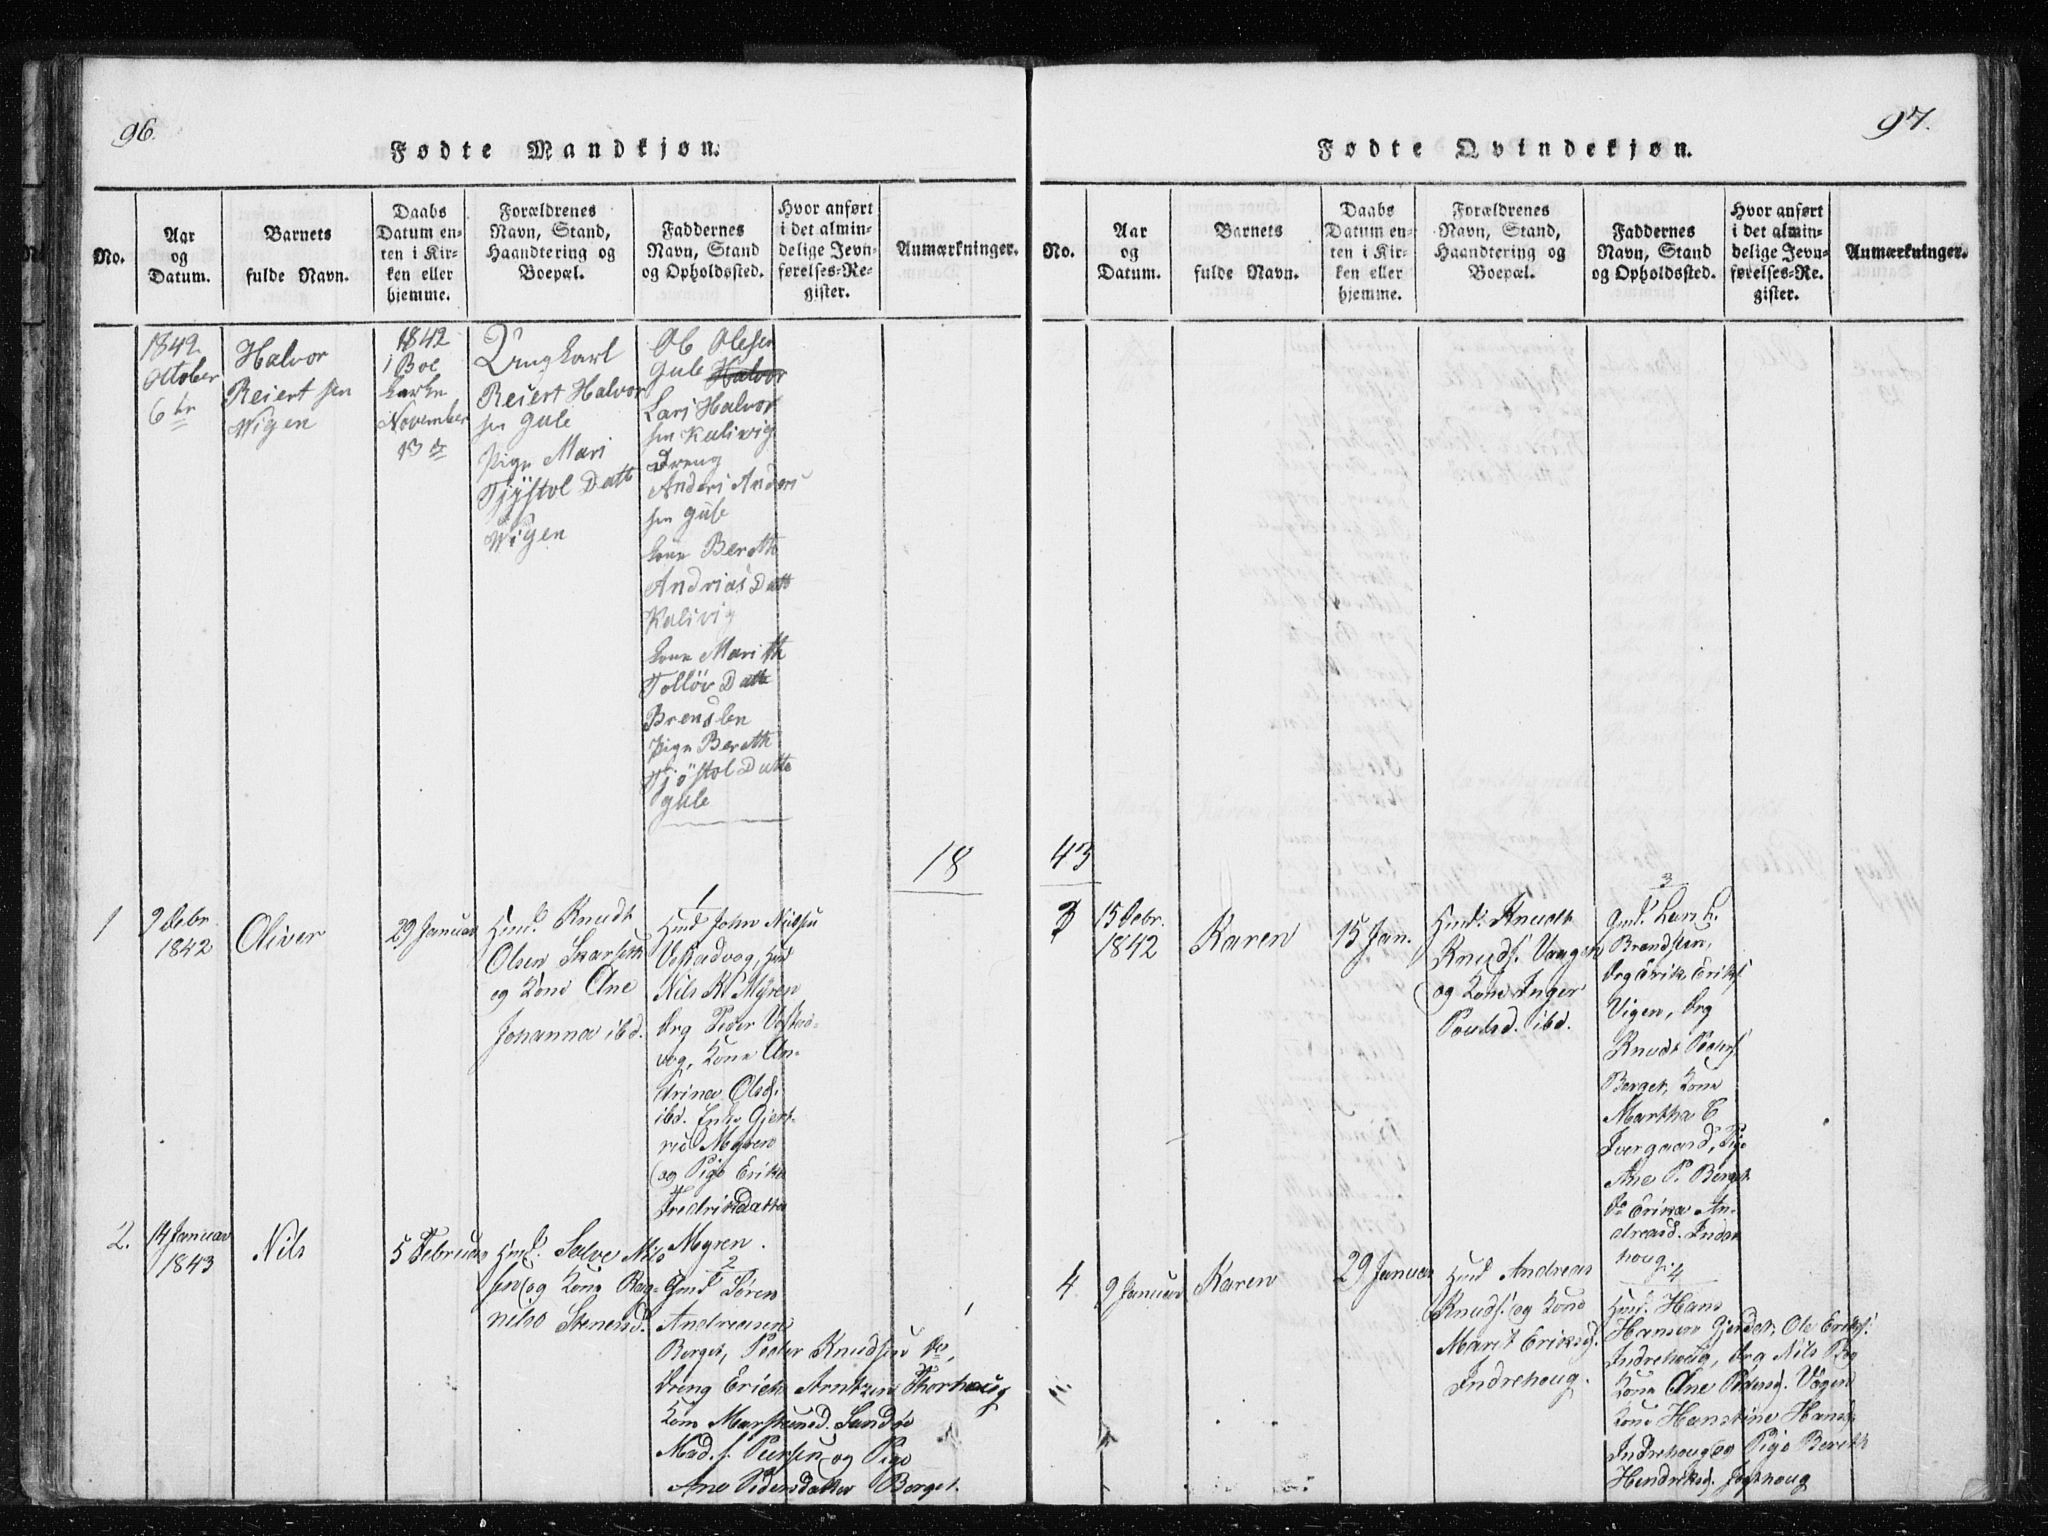 96.
Fødte Mandkjøn.
No.
Aar
og
Datum.
Barnets
fulde Navn.
Daabs
Datum en-
ten i Kir-
ken eller
hjemme.
Forældrenes
Navn, Stand,
Haandtering og
Boepæl.
Faddernes
Navn, Stand
og Opholdssted.
Hvor anført
i det almin-
delige Jevn-
førelses-Re-
gister.
Anmærkninger.
1842
October
6
Halvor
Reiert sen
Wigen
1842
i Boe
November
13
Ungkarl
Reiert Halvor
sen Gule
Pige Mari
Tjøstol Datt
Wigen
Ole Olesen
Gule Halvor
Lars Halvor
sen Kulivig
Dreng
Anders Anders
sen Gule
Kone Berethe
Andrias Datt
Kulivig
Kone Marith
Tolløv Datt
Brenslen
Pige Berethe
Tjøstol Datte
Gule
18
1
9 Debr.
1842
Oliver
29 Januar
Hmd. Knudt
Olsen Skarseth
og Kone Ane
Johanna ibd.
1
Hmd John Nilsen
Veskadvog, Hmd
Nils K. Myren
Drg Peder Veskad-
vog, Kone An-
drina Olsd.
ibd. Enke Gjert-
rud Myren
og Pige Erika
Fredriksdatter
Myren.
2.
14 Januar
1843
Nils
5 Februar
Hmd. Salve Nils
sen og Kone Rag-
nild Stenersd.
2
Gmd Søren
Andreasen
Berget, Peder Knudsen Do,
Dreng Erich Arntzen Thorhoug
Kone Marthe Sandøe
Mad. S. Peersen og Pige
Ane Pedersdatter Berget.
97.
Fødte Qvindekjøn.
No.
Aar
og
Datum.
Barnets
fulde Navn.
Daabs
Datum en-
ten i Kir-
ken eller
hjemme.
Forældrenes
Navn, Stand,
Haandtering og
Boepæl.
Faddernes
Navn, Stand
og Opholdssted.
Hvor anført
i det almin-
delige Jevn-
førelses-Re-
gister.
Anmærkninger.
43
3
15 Debr.
1842
Karen
15 Jan.
Hmd. Knudt
Knuds. Vaagen
og Kone Inger
Poulsd. ibd.
3
Gmd. Lars L.
Brandsten,
Drg Erik Eriks.
Vigen, Drg
Knudt Peders.
Berget, Kone
Martha E
Ivergaard, Pige
Ane P. Berget
Do Erika An-
dreasd. Indre
houg.
4.
9 Januar
Karen
29 Januar
Hmd Andreas
Knuds. og Kone
Marit Eriksd.
Indrehoug.
4
Hmd. Hans
Hansen Gjendet, Ole Eriks.
Indrehoug, Drg Nils Bog
Kone Ane Pedersd. Vågen
Kone Hanstine Hansd.
Indrehoug og Pige Berith
Hendriksd. Jogthoug